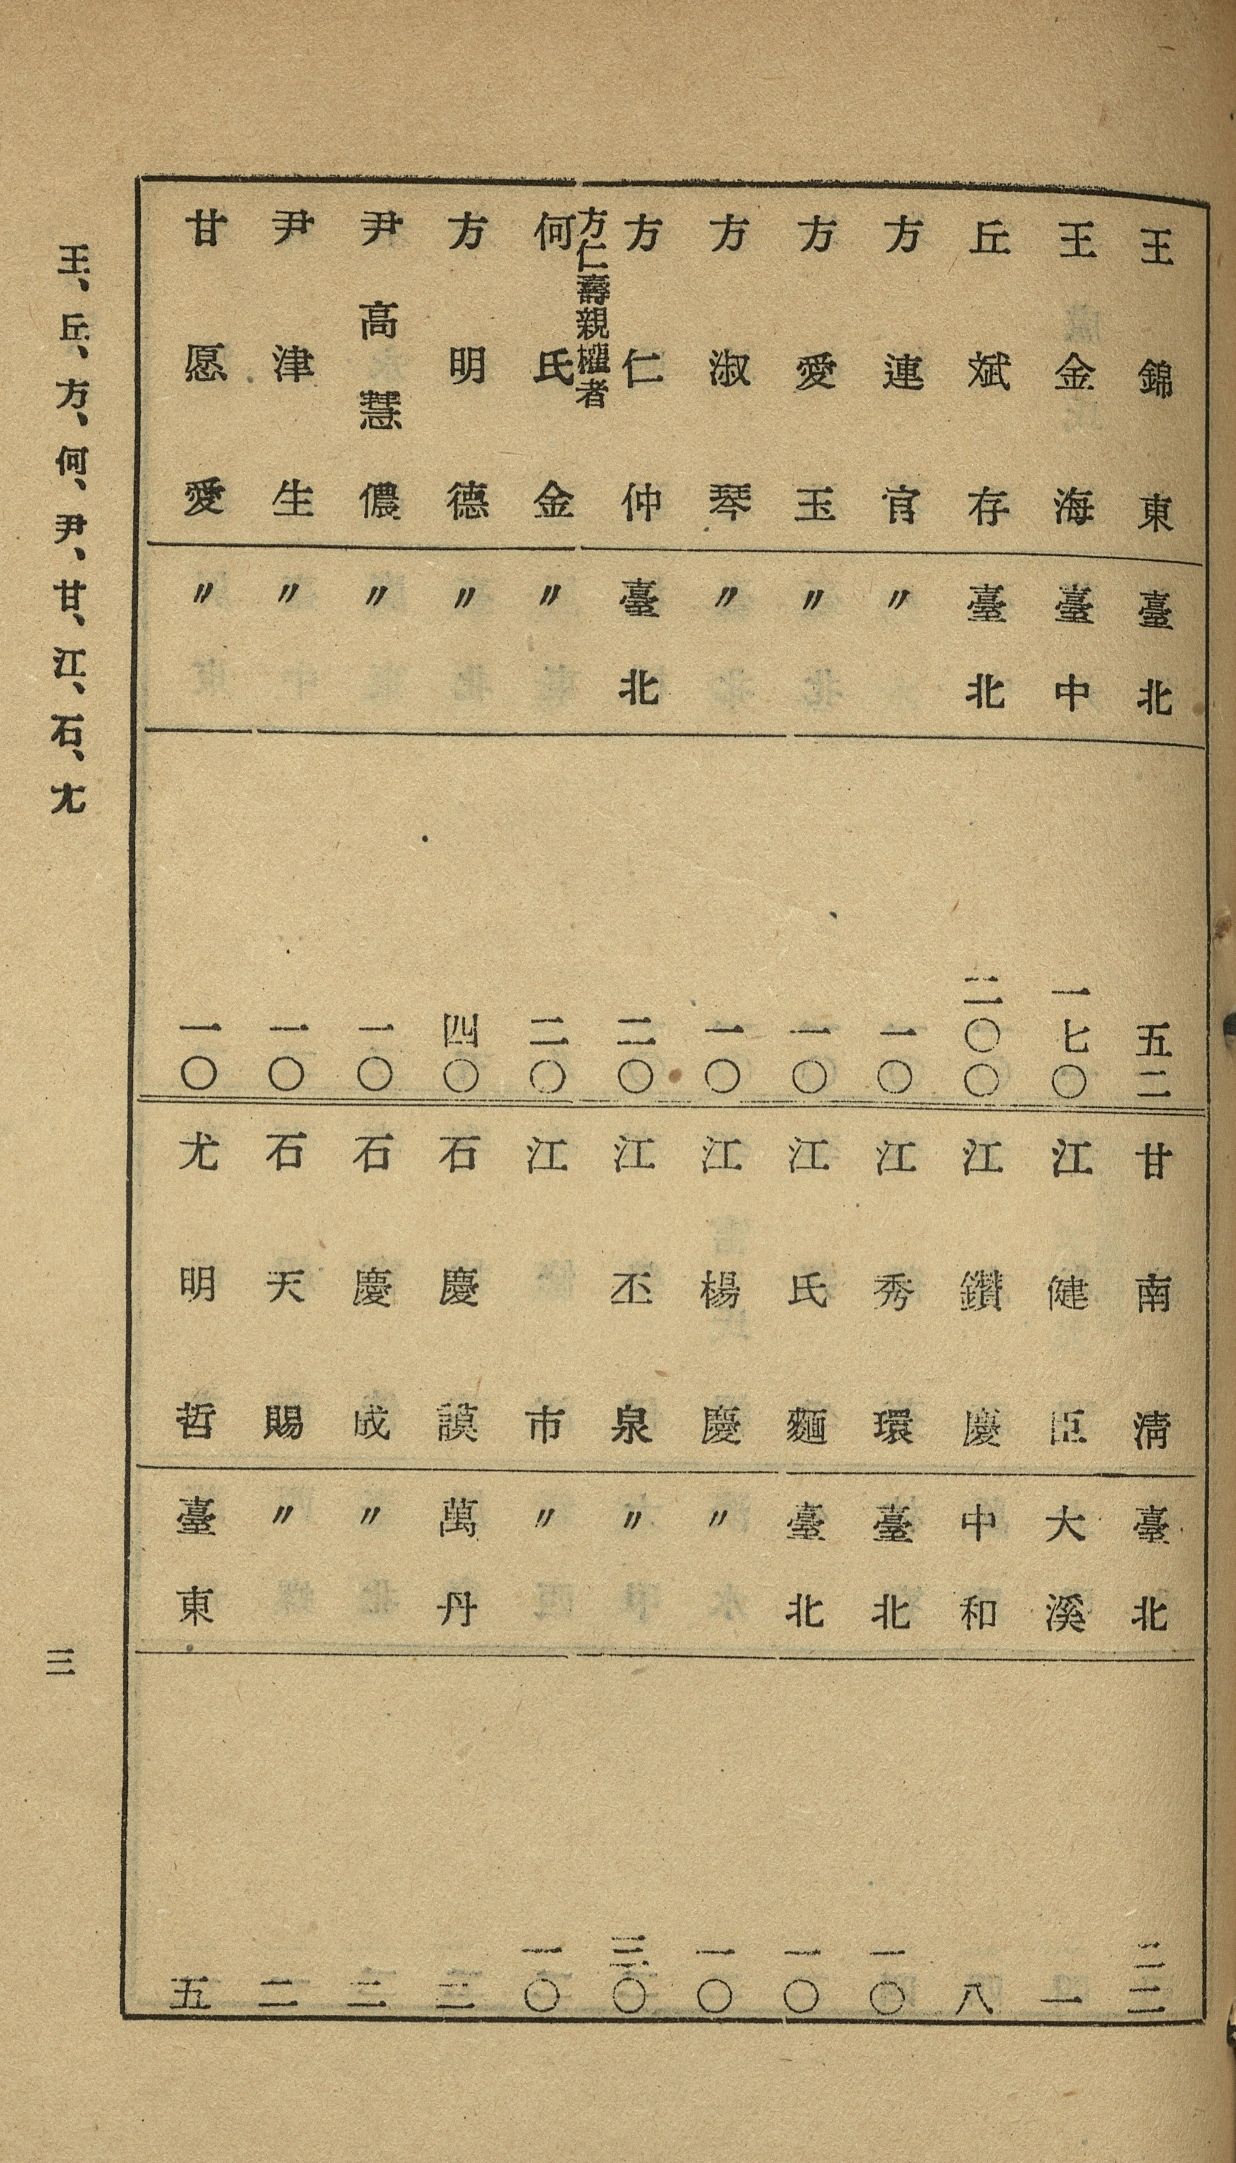 王錦東 臺北 五二
王金海 臺中 一七〇
丘斌存 臺北 二〇〇
方連官 〃 一〇
方愛玉 〃 一〇
方淑琴 〃 一〇
方仁仲 臺北 二〇
方仁壽親權者
何氏金 〃 二〇
方明德 〃 四〇
尹高慧儂 〃 一〇
尹津生 〃 一〇
甘愿愛 〃 一〇
甘南淸 臺北 二二
江健臣 大溪 一
江鑽慶 中和 八
江秀環 臺北 一〇
江氏麵 臺北 一〇
江楊慶 〃 一〇
江丕泉 〃 三〇
江市 〃 一〇
石慶謨 萬丹
石慶成 〃 二
石天賜 〃 二
尤明哲 臺東 五
王、丘、方、何、尹、甘、江、石、尤
三